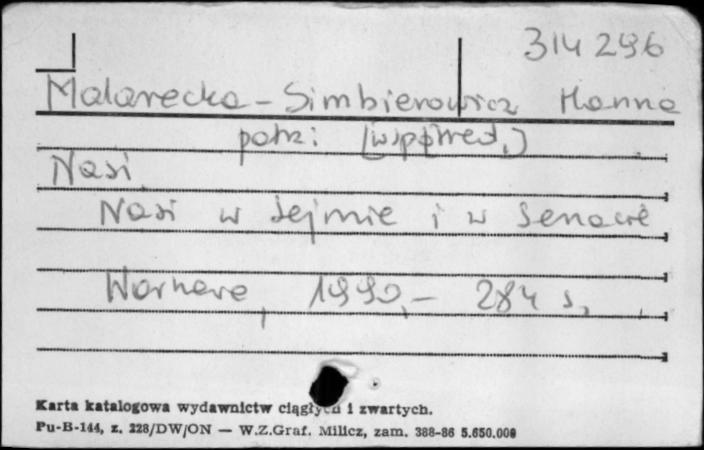 314 296
Malarecka-Simbierowicz Hanna
patrz: [współred.]
Nasi
Nasi w Sejmie i w Senacie
Warszawa, 1990,- 284 s,
Karta katalogowa wydawnictw ciągłych i zwartych.
Pu-B-144, z. 228/DW/ON — W.Z.Graf. Milicz, zam. 388-86 5.650.000